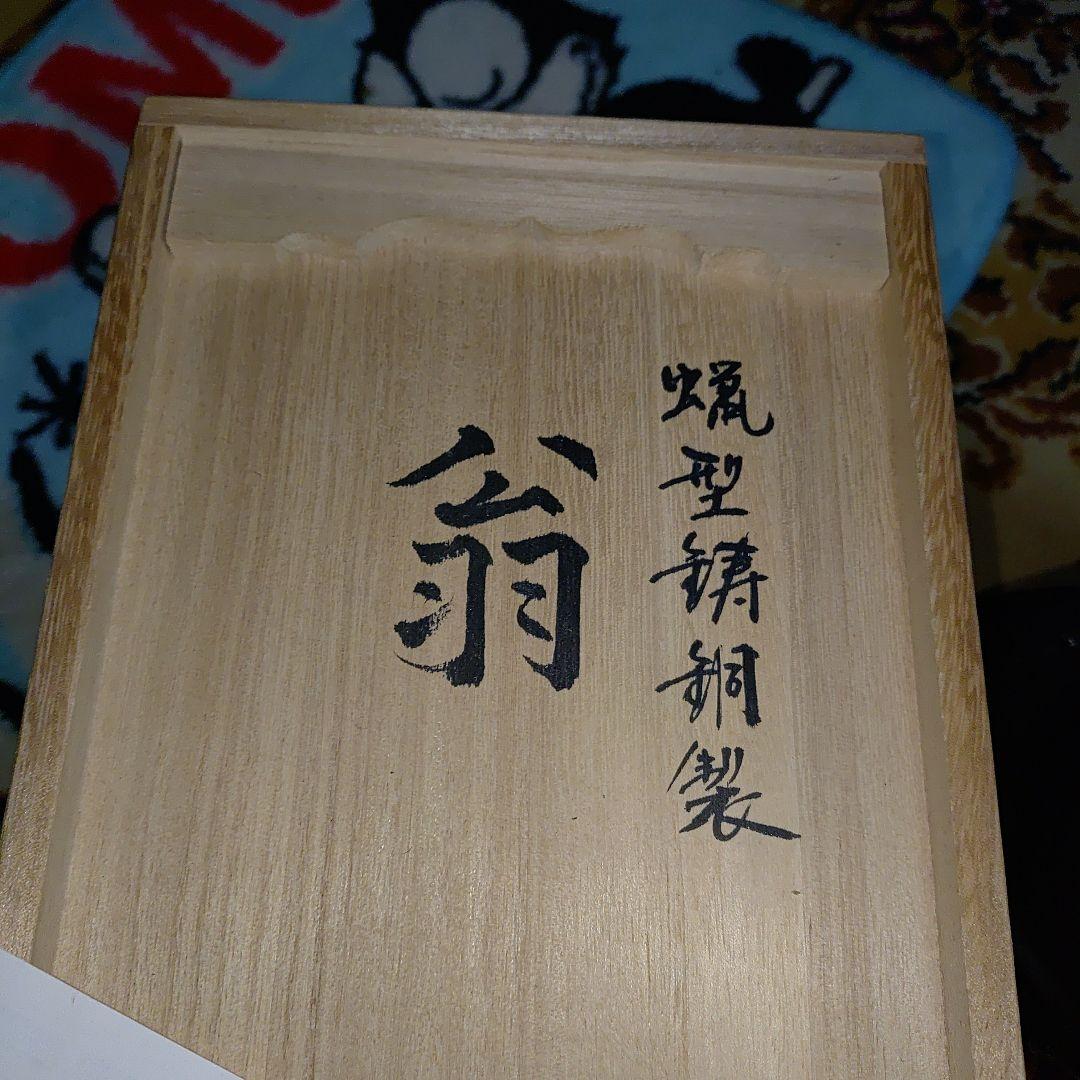 蝋型鋳銅製
翁
OM